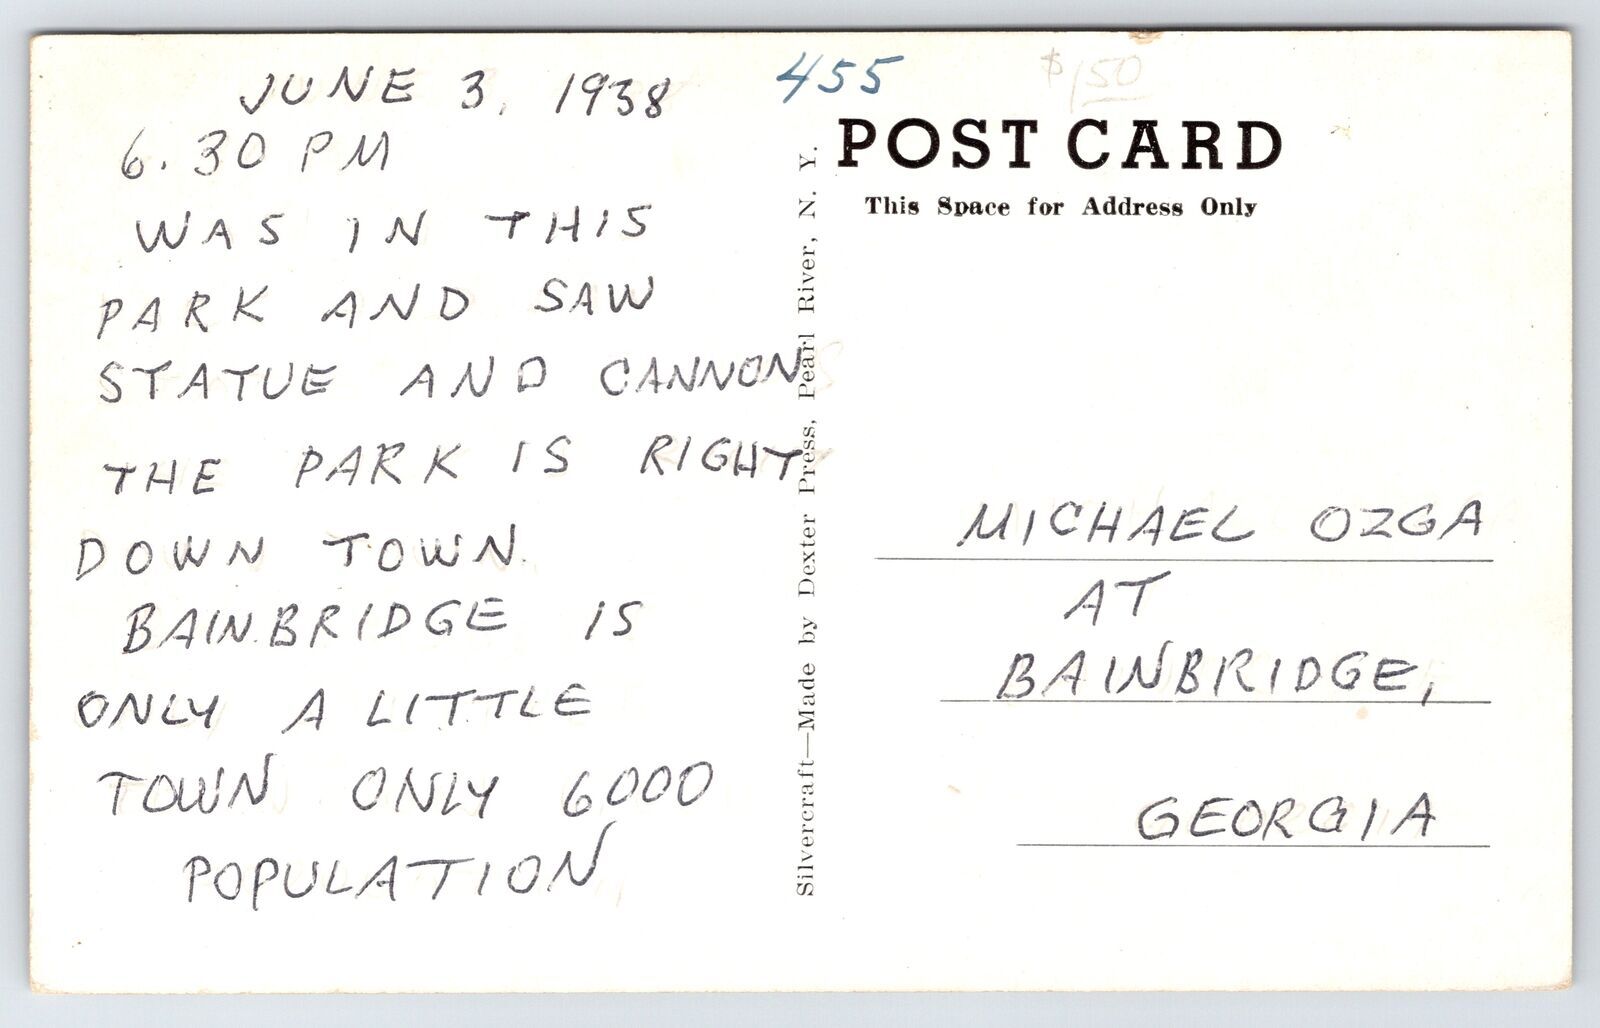 JUNE 3, 1938
6.30 PM
WAS IN THIS
PARK AND SAW
STATUE AND CANNON
THE PARK IS RIGHT
DOWN TOWN.
BAINBRIDGE IS
ONLY A LITTLE
TOWN ONLY 6000
POPULATION
Silvercraft—Made by Dexter Press, Pearl River, N. Y.
455
$1.50
POST CARD
This Space for Address Only
MICHAEL OZGA
AT
BAINBRIDGE,
GEORGIA